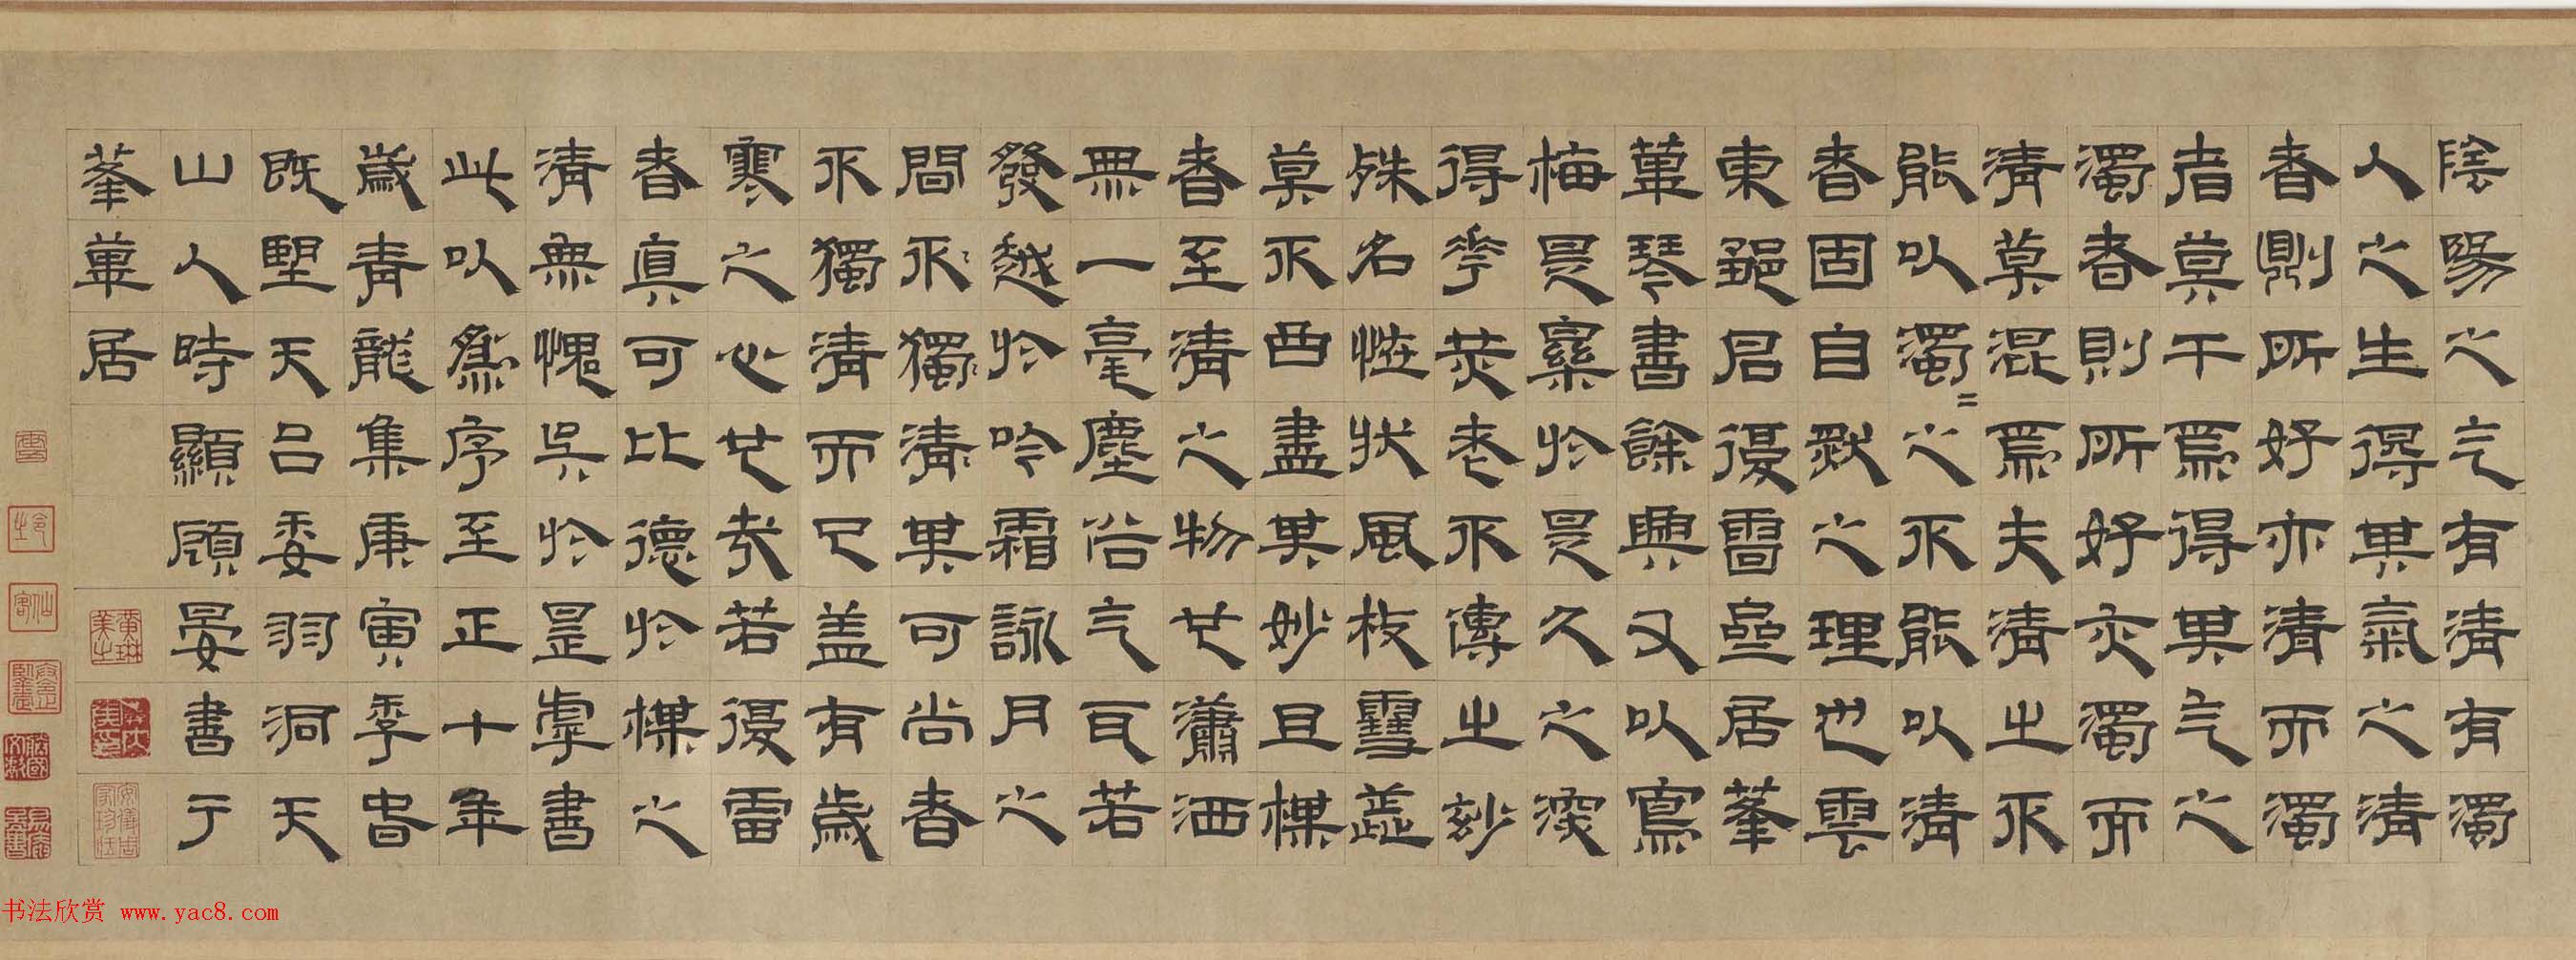 陰陽之气有清有濁
人之生得其氣之清
者則所好亦清而濁
者莫干焉得其气之
濁者則所好亦濁而
清莫混焉夫清之不
能以濁=之不能以清
者固自然之理也雲
東郵君復啚居
琴書餘興又以寫
梅是於是久之深
得華炗老不傳之玅
殊名性狀風枝雪蕊
莫不盡其妙且楳
者至清之物也瀟洒
無一毫塵俗气若
發越於吟霜詠月之
間不獨清其可尚者
不獨清而已蓋有歲
寒之心也哉若復雷
者真可比德於楳之
清無愧吳於是虖書
此以為序至正十年
歲青龍集庚寅季旹
既望天台委羽洞天
山人時顯顧晏書于
居
书法欣赏 www.yac8.com